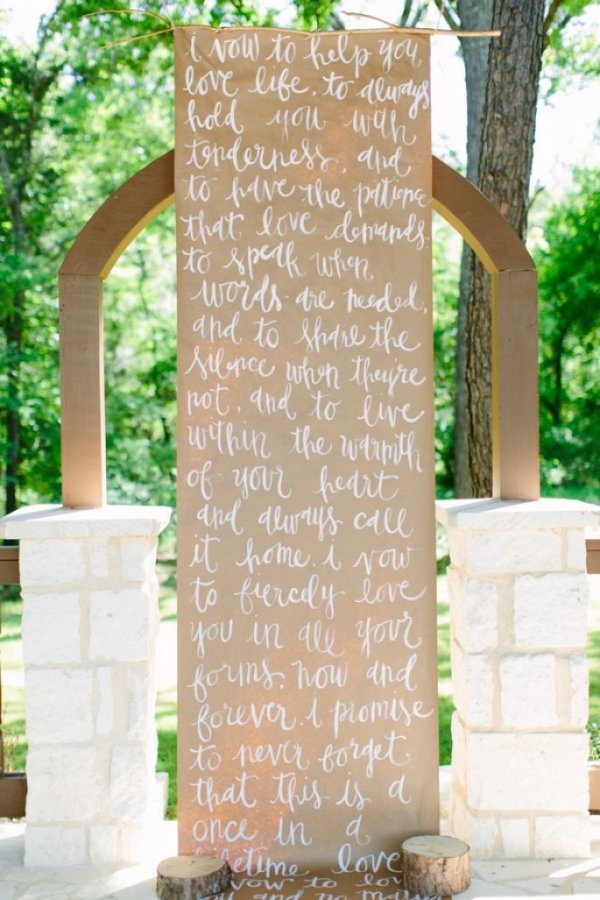 i vow to help you
love life. to always
hold you with
tenderness, and
to have the patience
that love demands.
to speak when
words are needed,
and to share the
silence when they're
not. and to live
within the warmth
of your heart
and always call
it home. i vow
to fiercely love
you in all your
forms. now and
forever. i promise
to never forget
that this is a
once in a
lifetime love
vow to love
you and no matter